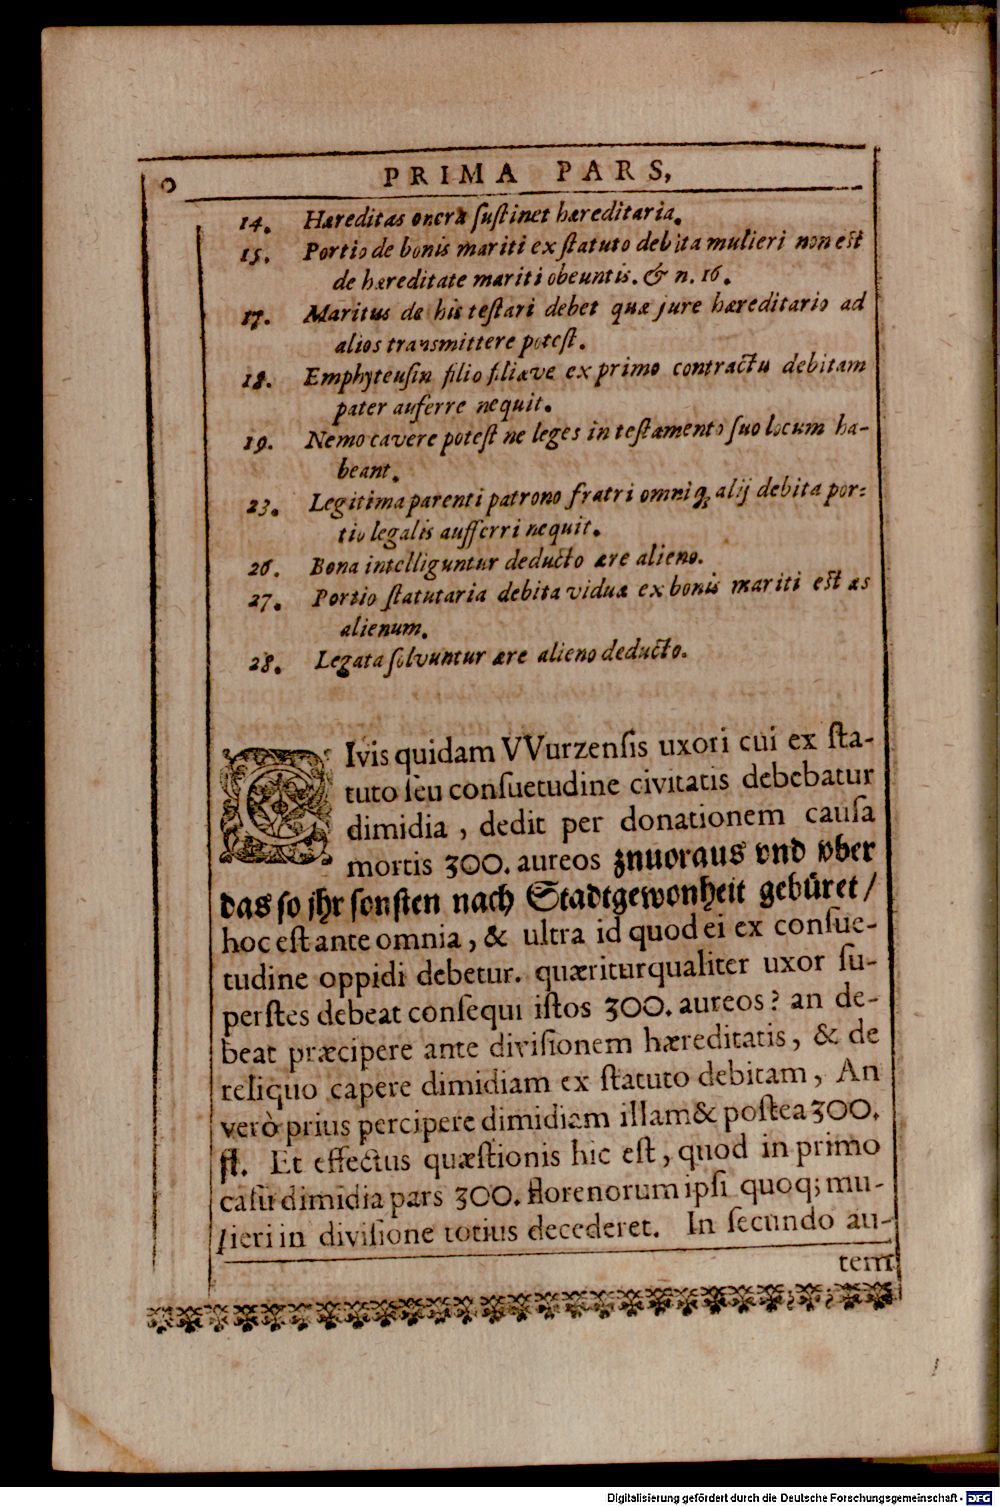 PRIMA PARS,
14. Hæreditas onera ſuſtinet hæreditaria.
15. Portio de bonis mariti ex ſtatuto debita mulieri non eſt
de hæreditate mariti obeuntis. & n. 16.
17. Maritus de his teſtari debet quæ jure hæreditario ad
alios transmittere poteſt.
18. Emphyteuſin filio filiæve ex primo contractu debitam
pater auferre nequit.
19. Nemo cavere poteſt ne leges in teſtamento ſuo locum ha-
beant.
23. Legitima parenti patrono fratri omniq; alij debita por-
tio legalis aufferri nequit.
26. Bona intelliguntur deducto ære alieno.
27. Portio ſtatutaria debita viduæ ex bonis mariti eſt æs
alienum.
28. Legata ſolvuntur ære alieno deducto.
CIvis quidam VVurzenſis uxori cui ex ſta-
tuto ſeu conſuetudine civitatis debebatur
dimidia, dedit per donationem cauſa
mortis 300. aureos znuoraus vnd vber
das ſo jhr ſonſten nach Stadtgewonheit gebüret/
hoc eſt ante omnia, & ultra id quod ei ex conſue-
tudine oppidi debetur. quæriturqualiter uxor ſu-
perſtes debeat conſequi iſtos 300. aureos? an de-
beat præcipere ante diviſionem hæreditatis, & de
reliquo capere dimidiam ex ſtatuto debitam, An
verò prius percipere dimidiam illam & poſtea 300.
fl. Et effectus quæſtionis hic eſt, quod in primo
caſu dimidia pars 300. florenorum ipſi quoq; mu-
lieri in diviſione totius decederet. In ſecundo au-
tem
Digitalisierung gefördert durch die Deutsche Forschungsgemeinschaft - DFG